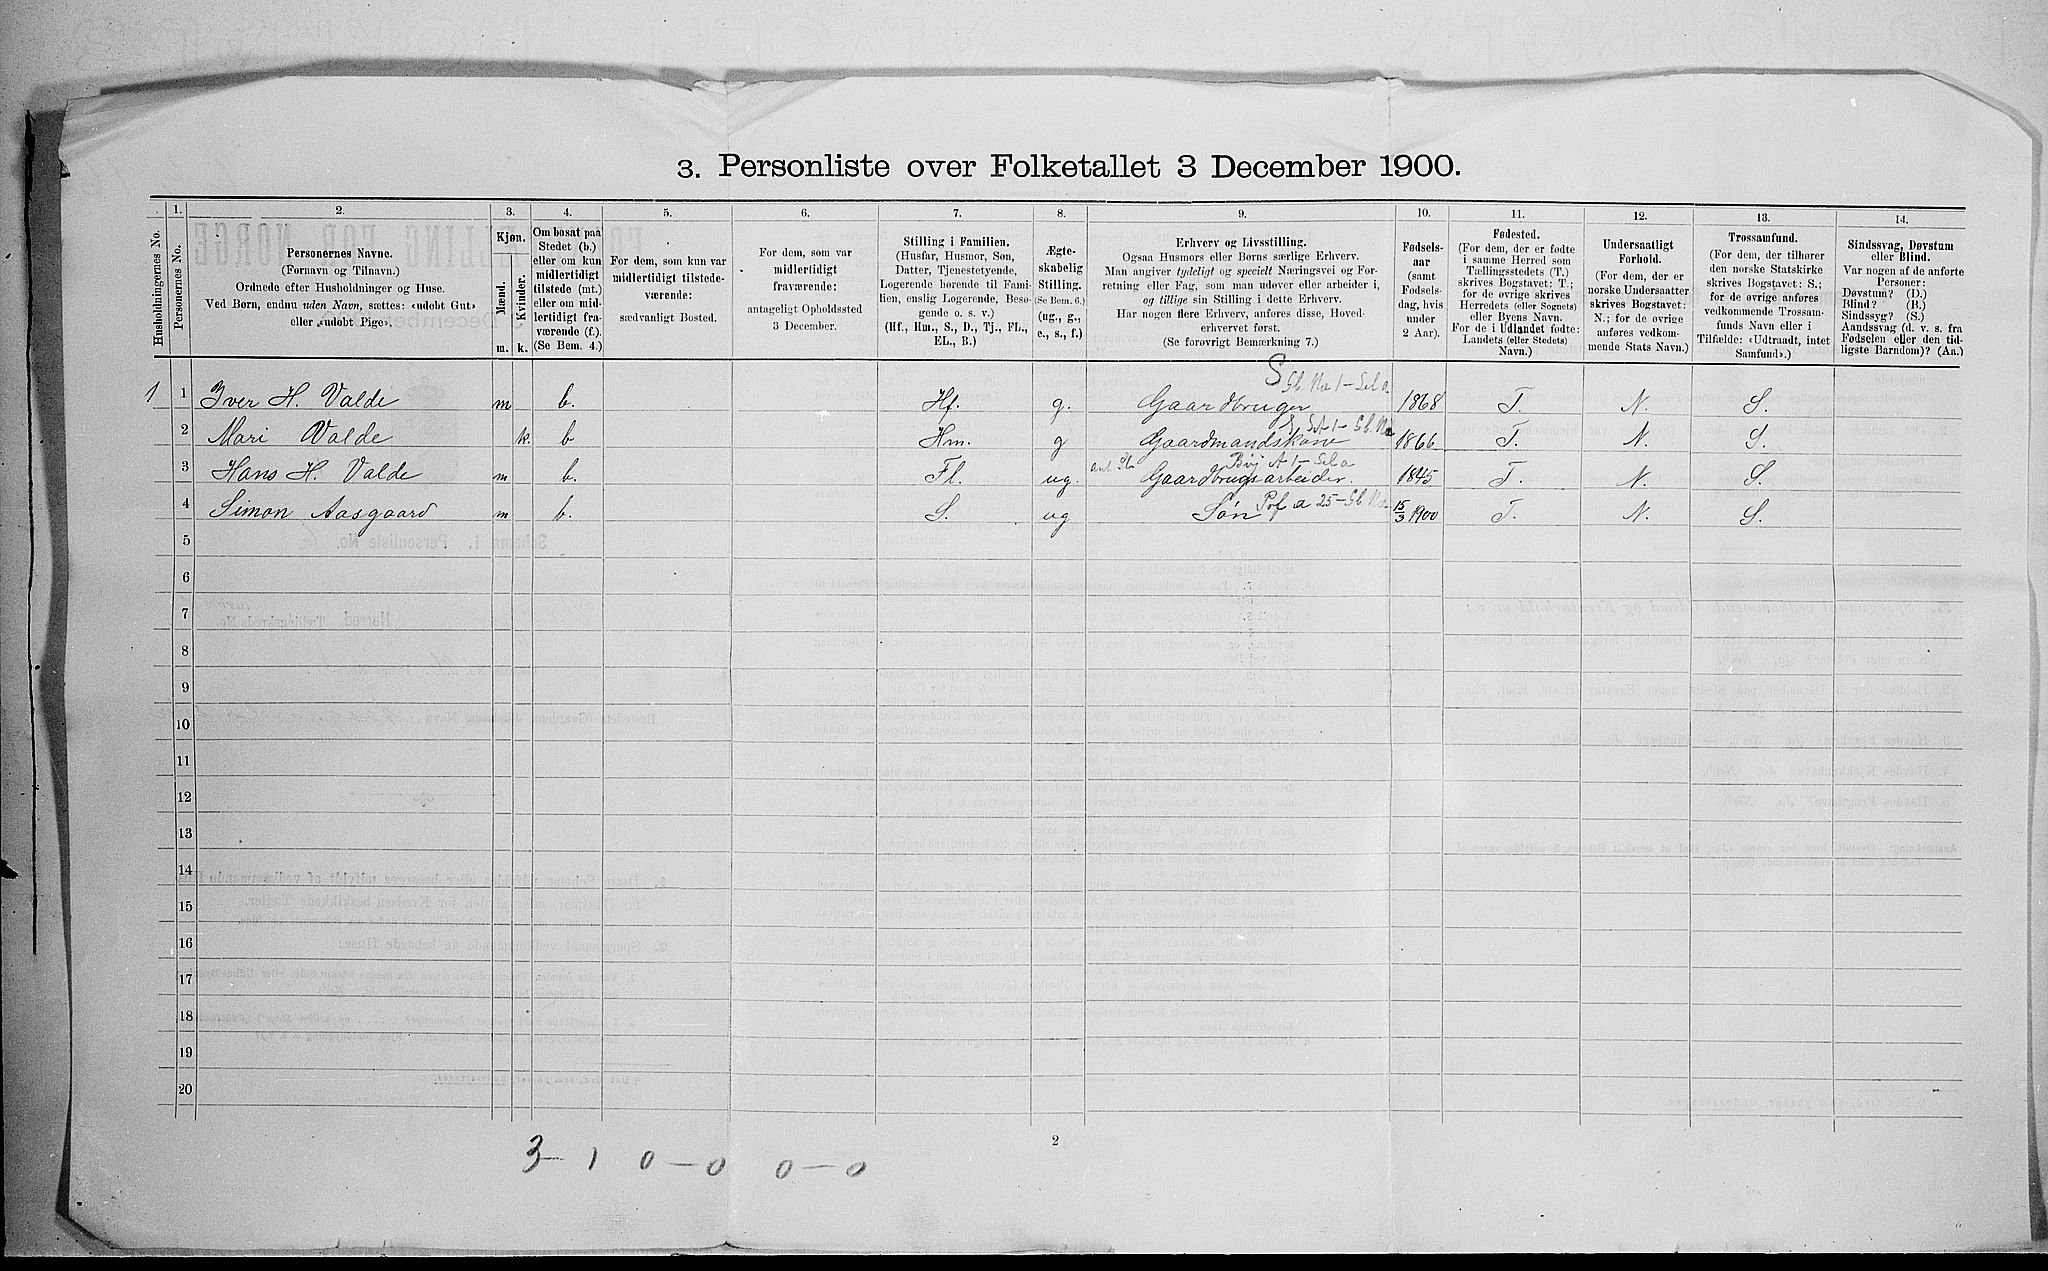 3. Personliste over Folketallet 3 December 1900.
Husholdningernes No.
1.
Personernes No.
2.
Personernes Navne.
(Fornavn og Tilnavn.)
Ordnede efter Husholdninger og Huse.
Ved Børn, endnu uden Navn, sættes: «udøbt Gut»
eller «udøbt Pige».
3.
Kjøn.
Mænd.
Kvinder.
m.
k.
4.
Om bosat paa
Stedet (b.)
eller om kun
midlertidigt
tilstede (mt.)
eller om mid-
lertidigt fra-
værende (f.).
(Se Bem. 4.)
5.
For dem, som kun var
midlertidigt tilstede-
værende:
sædvanligt Bosted.
6.
For dem, som var
midlertidigt
fraværende:
antageligt Opholdssted
3 December.
7.
Stilling i Familien.
(Husfar, Husmor, Søn,
Datter, Tjenestetyende,
Logerende hørende til Fami-
lien, enslig Logerende, Besø-
gende o. s. v.)
(Hf., Hm., S., D., Tj., FL.,
EL., B.)
8.
Ægte-
skabelig
Stilling.
(Se Bem. 6.)
(ug., g.,
e., s., f.)
9.
Erhverv og Livsstilling.
Ogsaa Husmors eller Børns særlige Erhverv.
Man angiver tydeligt og specielt Næringsvei og For-
retning eller Fag, som man udøver eller arbeider i,
og tillige sin Stilling i dette Erhverv.
Har nogen flere Erhverv, anføres disse, Hoved-
erhvervet først.
(Se forøvrigt Bemærkning 7.)
10.
Fødsels-
aar
(samt
Fødsels-
dag, hvis
under
2 Aar).
11.
Fødested.
(For dem, der er fødte
i samme Herred som
Tællingsstedets (T.)
skrives Bogstavet: T.;
for de øvrige skrives
Herredets (eller Sognets)
eller Byens Navn.
For de i Udlandet fødte:
Landets (eller Stedets)
Navn.)
12.
Undersaatligt
Forhold.
(For dem, der er
norske Undersaatter
skrives Bogstavet:
N.; for de øvrige
anføres vedkom-
mende Stats Navn.)
13.
Trossamfund.
(For dem, der tilhører
den norske Statskirke
skrives Bogstavet: S.;
for de øvrige anføres
vedkommende Trossam-
funds Navn eller i
Tilfælde: «Udtraadt, intet
Samfund».)
14.
Sindssvag, Døvstum
eller Blind.
Var nogen af de anførte
Personer:
Døvstum? (D.)
Blind? (B.)
Sindssyg? (S.)
Aandssvag (d. v. s. fra
Fødselen eller den tid-
ligste Barndom)? (Aa.)
1 1 Iver H. Valde m b. Hf. g. Gaardbruger 1868 T. N. S.
2 Mari Valde k. b Hm. g Gaardmandskone 1866 T. N. S.
3 Hans H. Valde m b. Fl. ug. Gaardbrugsarbeider. 1845 T. N. S.
4 Simon Aasgaard m b. S. ug Søn 15/3 1900 T. N. S.
5
6
7
8
9
10
11
12
13
14
15
16
17
18
19
20
2
3 – 1 0 – 0 0 – 0